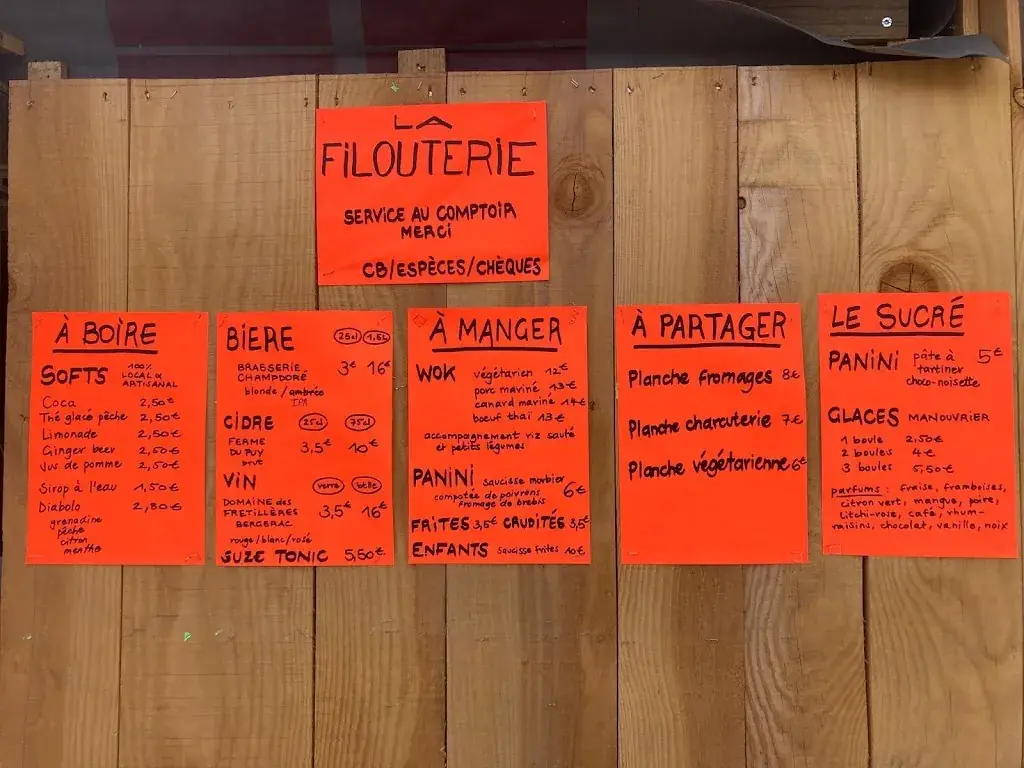 LA
FILOUTERIE
SERVICE AU COMPTOIR
MERCI
CB/ESPÈCES/CHÈQUES
À BOIRE
SOFTS 100%
LOCAL &
ARTISANAL
Coca 2,50€
Thé glacé pêche 2,50€
Limonade 2,50€
Ginger beer 2,50€
Jus de pomme 2,50€
Sirop à l'eau 1,50€
Diabolo 2,80€
grenadine
pêche
citron
menthe
BIERE 25cl 1,5L
BRASSERIE 3€ 16€
CHAMPDORÉ
blonde / ambrée
IPA
CIDRE 25cl 75cl
FERME 3,5€ 10€
DU PUY
brut
VIN verre btlle
DOMAINE des 3,5€ 16€
FRETILLÈRES
BERGERAC
rouge/blanc/rosé
SUZE TONIC 5,50€
À MANGER
WOK végétarien 12€
porc mariné 13€
canard mariné 14€
boeuf thaï 13€
accompagnement riz sauté
et petits légumes
PANINI saucisse morbier 6€
compotée de poivrons
fromage de brebis
FRITES 3,5€ CRUDITÉS 3,5€
ENFANTS saucisse frites 10€
À PARTAGER
Planche fromages 8€
Planche charcuterie 7€
Planche végétarienne 6€
LE SUCRÉ
PANINI pâte à 5€
tartiner
choco-noisette
GLACES MANOUVRIER
1 boule 2,50€
2 boules 4€
3 boules 5,50€
parfums : fraise, framboises,
citron vert, mangue, poire,
litchi-rose, café, rhum-
raisins, chocolat, vanille, noix